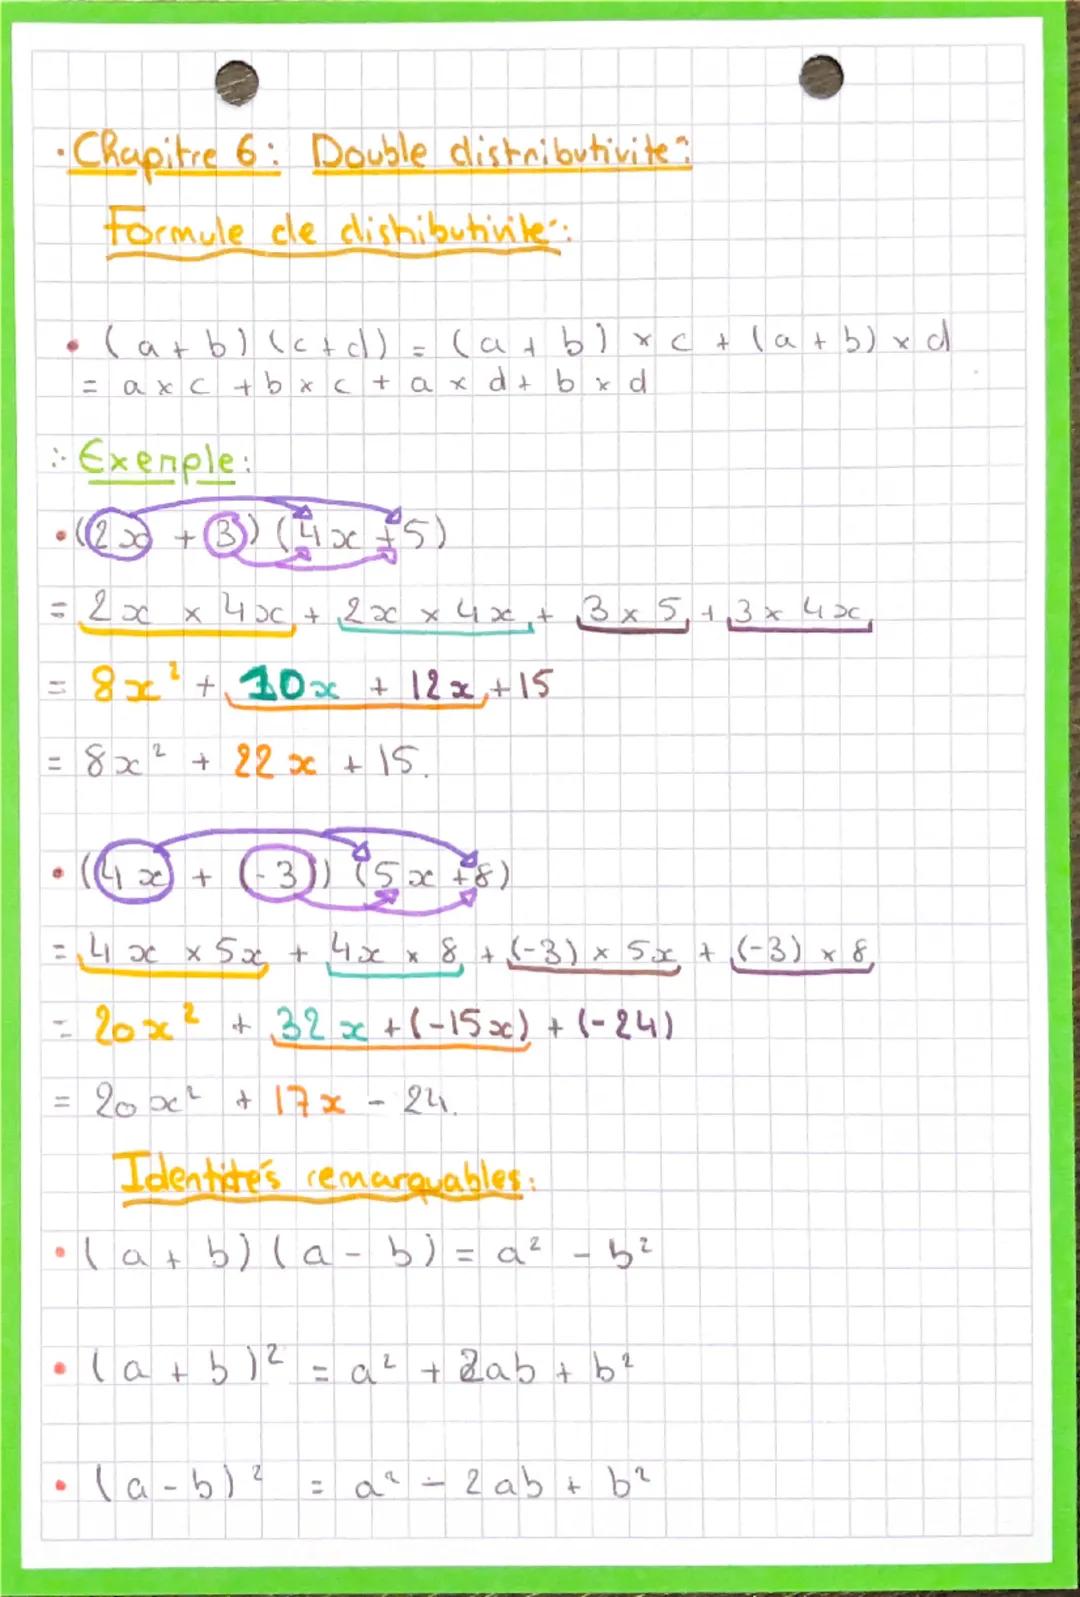 · Chapitre 6 : Double distributivité :
Formule de distributivité :
• (a + b) (c + d) = (a + b) × c + (a + b) × d
= a × c + b × c + a × d + b × d
∴ Exemple :
• (2x + 3) (4x + 5)
= 2x × 4x + 2x × 4x + 3 × 5 + 3 × 4x
= 8x² + 10x + 12x + 15
= 8x² + 22x + 15.
• (4x + (-3)) (5x + 8)
= 4x × 5x + 4x × 8 + (-3) × 5x + (-3) × 8
= 20x² + 32x + (-15x) + (-24)
= 20x² + 17x - 24.
Identités remarquables :
• (a + b) (a - b) = a² - b²
• (a + b)² = a² + 2ab + b²
• (a - b)² = a² - 2ab + b²